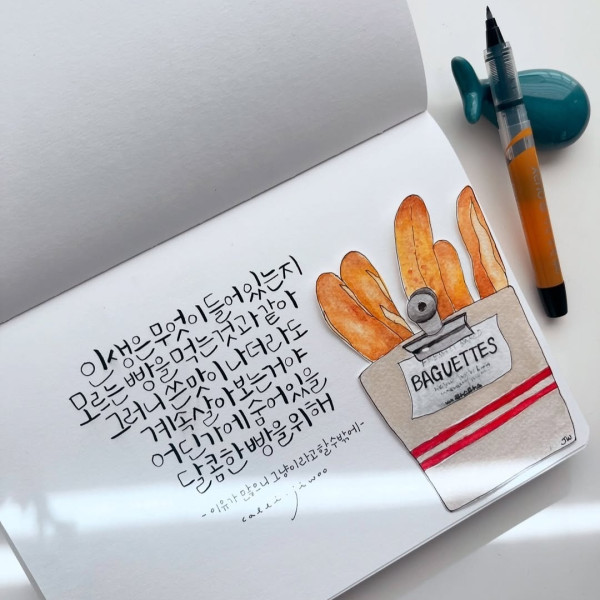 인생은 무엇이 들어 있는지
모르는 빵을 먹는 것과 같아
그러니 쓴맛이 나더라도
계속 살아 보는거야
어딘가에 숨어있을
달콤한 빵을 위해
- 이유가 많으니 그냥이라고 할 수밖에 -
calli.jiwoo
BAGUETTES
JW